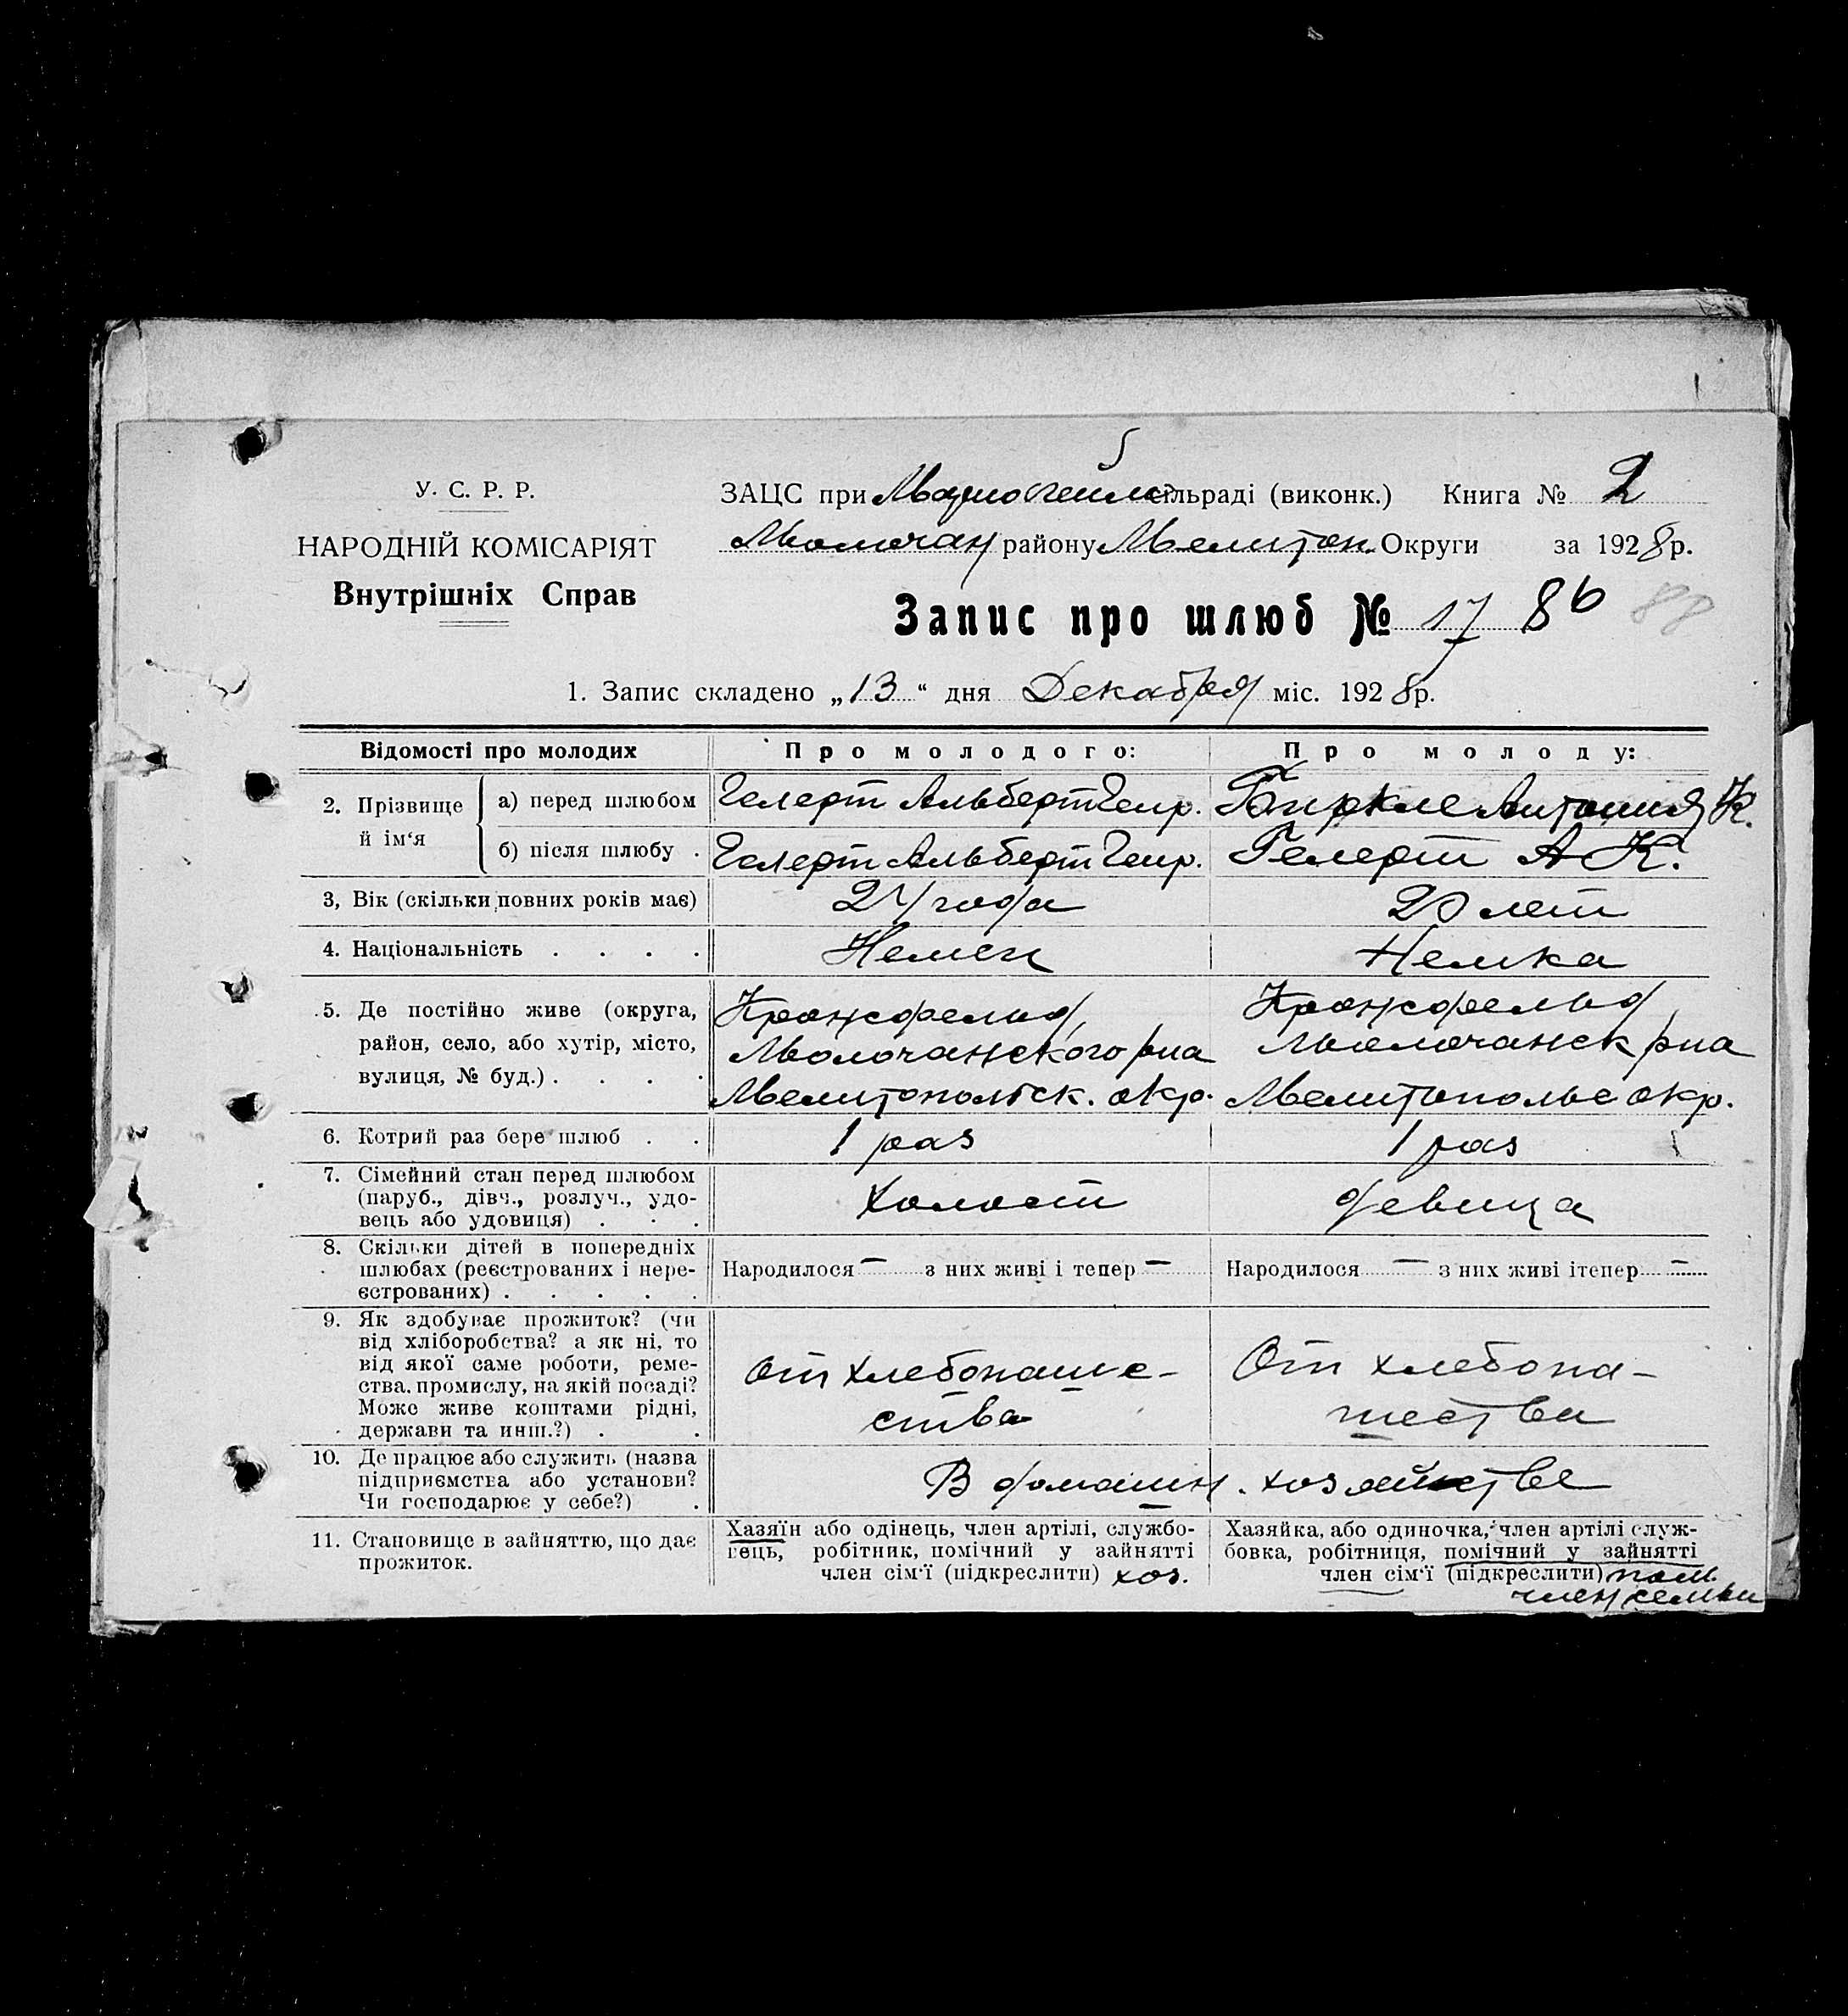 У. С. Р. Р.
НАРОДНІЙ КОМІСАРІЯТ
Внутрішніх Справ
ЗАЦС при сільраді (виконк.) Книга № 2
Молочан району Мелитоп. Округи за 1928 р.
Запис про шлюб № 17 86 88
1. Запис складено „13“ дня Декабря міс. 1928 р.
Відомості про молодих Про молодого: Про молоду:
2. Прізвище й ім‘я
а) перед шлюбом Гелерт Альберт Генр. Антония К.
б) після шлюбу . Гелерт Альберт Генр. Гелерт А К.
3, Вік (скільки повних років має) 24 года 20 лет
4. Національність . . . . Немец Немка
5. Де постійно живе (округа,
район, село, або хутір, місто,
вулиця, № буд.) . . . .
Кронсфельд,
Молочанского р-на
Мелитопольск. окр.
Кронсфельд,
Молочанск р-на
Мелитопольс окр.
6. Котрий раз бере шлюб . . 1 раз 1 раз
7. Сімейний стан перед шлюбом
(паруб., дівч., розлуч., удо-
вець або удовиця) . . .
Холост девица
8. Скільки дітей в попередніх
шлюбах (реєстрованих і нере-
єстрованих) . . . . .
Народилося — з них живі і тепер — Народилося — з них живі ітепер —
9. Як здобуває прожиток? (чи
від хліборобства? а як ні, то
від якої саме роботи, реме-
ства, промислу, на якій посаді?
Може живе коштами рідні,
держави та инш.?) . .
От хлебопаше-
ства
От хлебопа-
шества
10. Де працює або служить (назва
підприємства або установи?
Чи господарює у себе?) .
В домашн. хозяйстве
11. Становище в зайняттю, що дає
прожиток.
Хазяїн або одінець, член артілі, службо-
вець, робітник, помічний у зайнятті
член сім‘ї (підкреслити) хоз.
Хазяйка, або одиночка, член артілі служ-
бовка, робітниця, помічний у зайнятті
член сім‘ї (підкреслити) пом.
член семьи